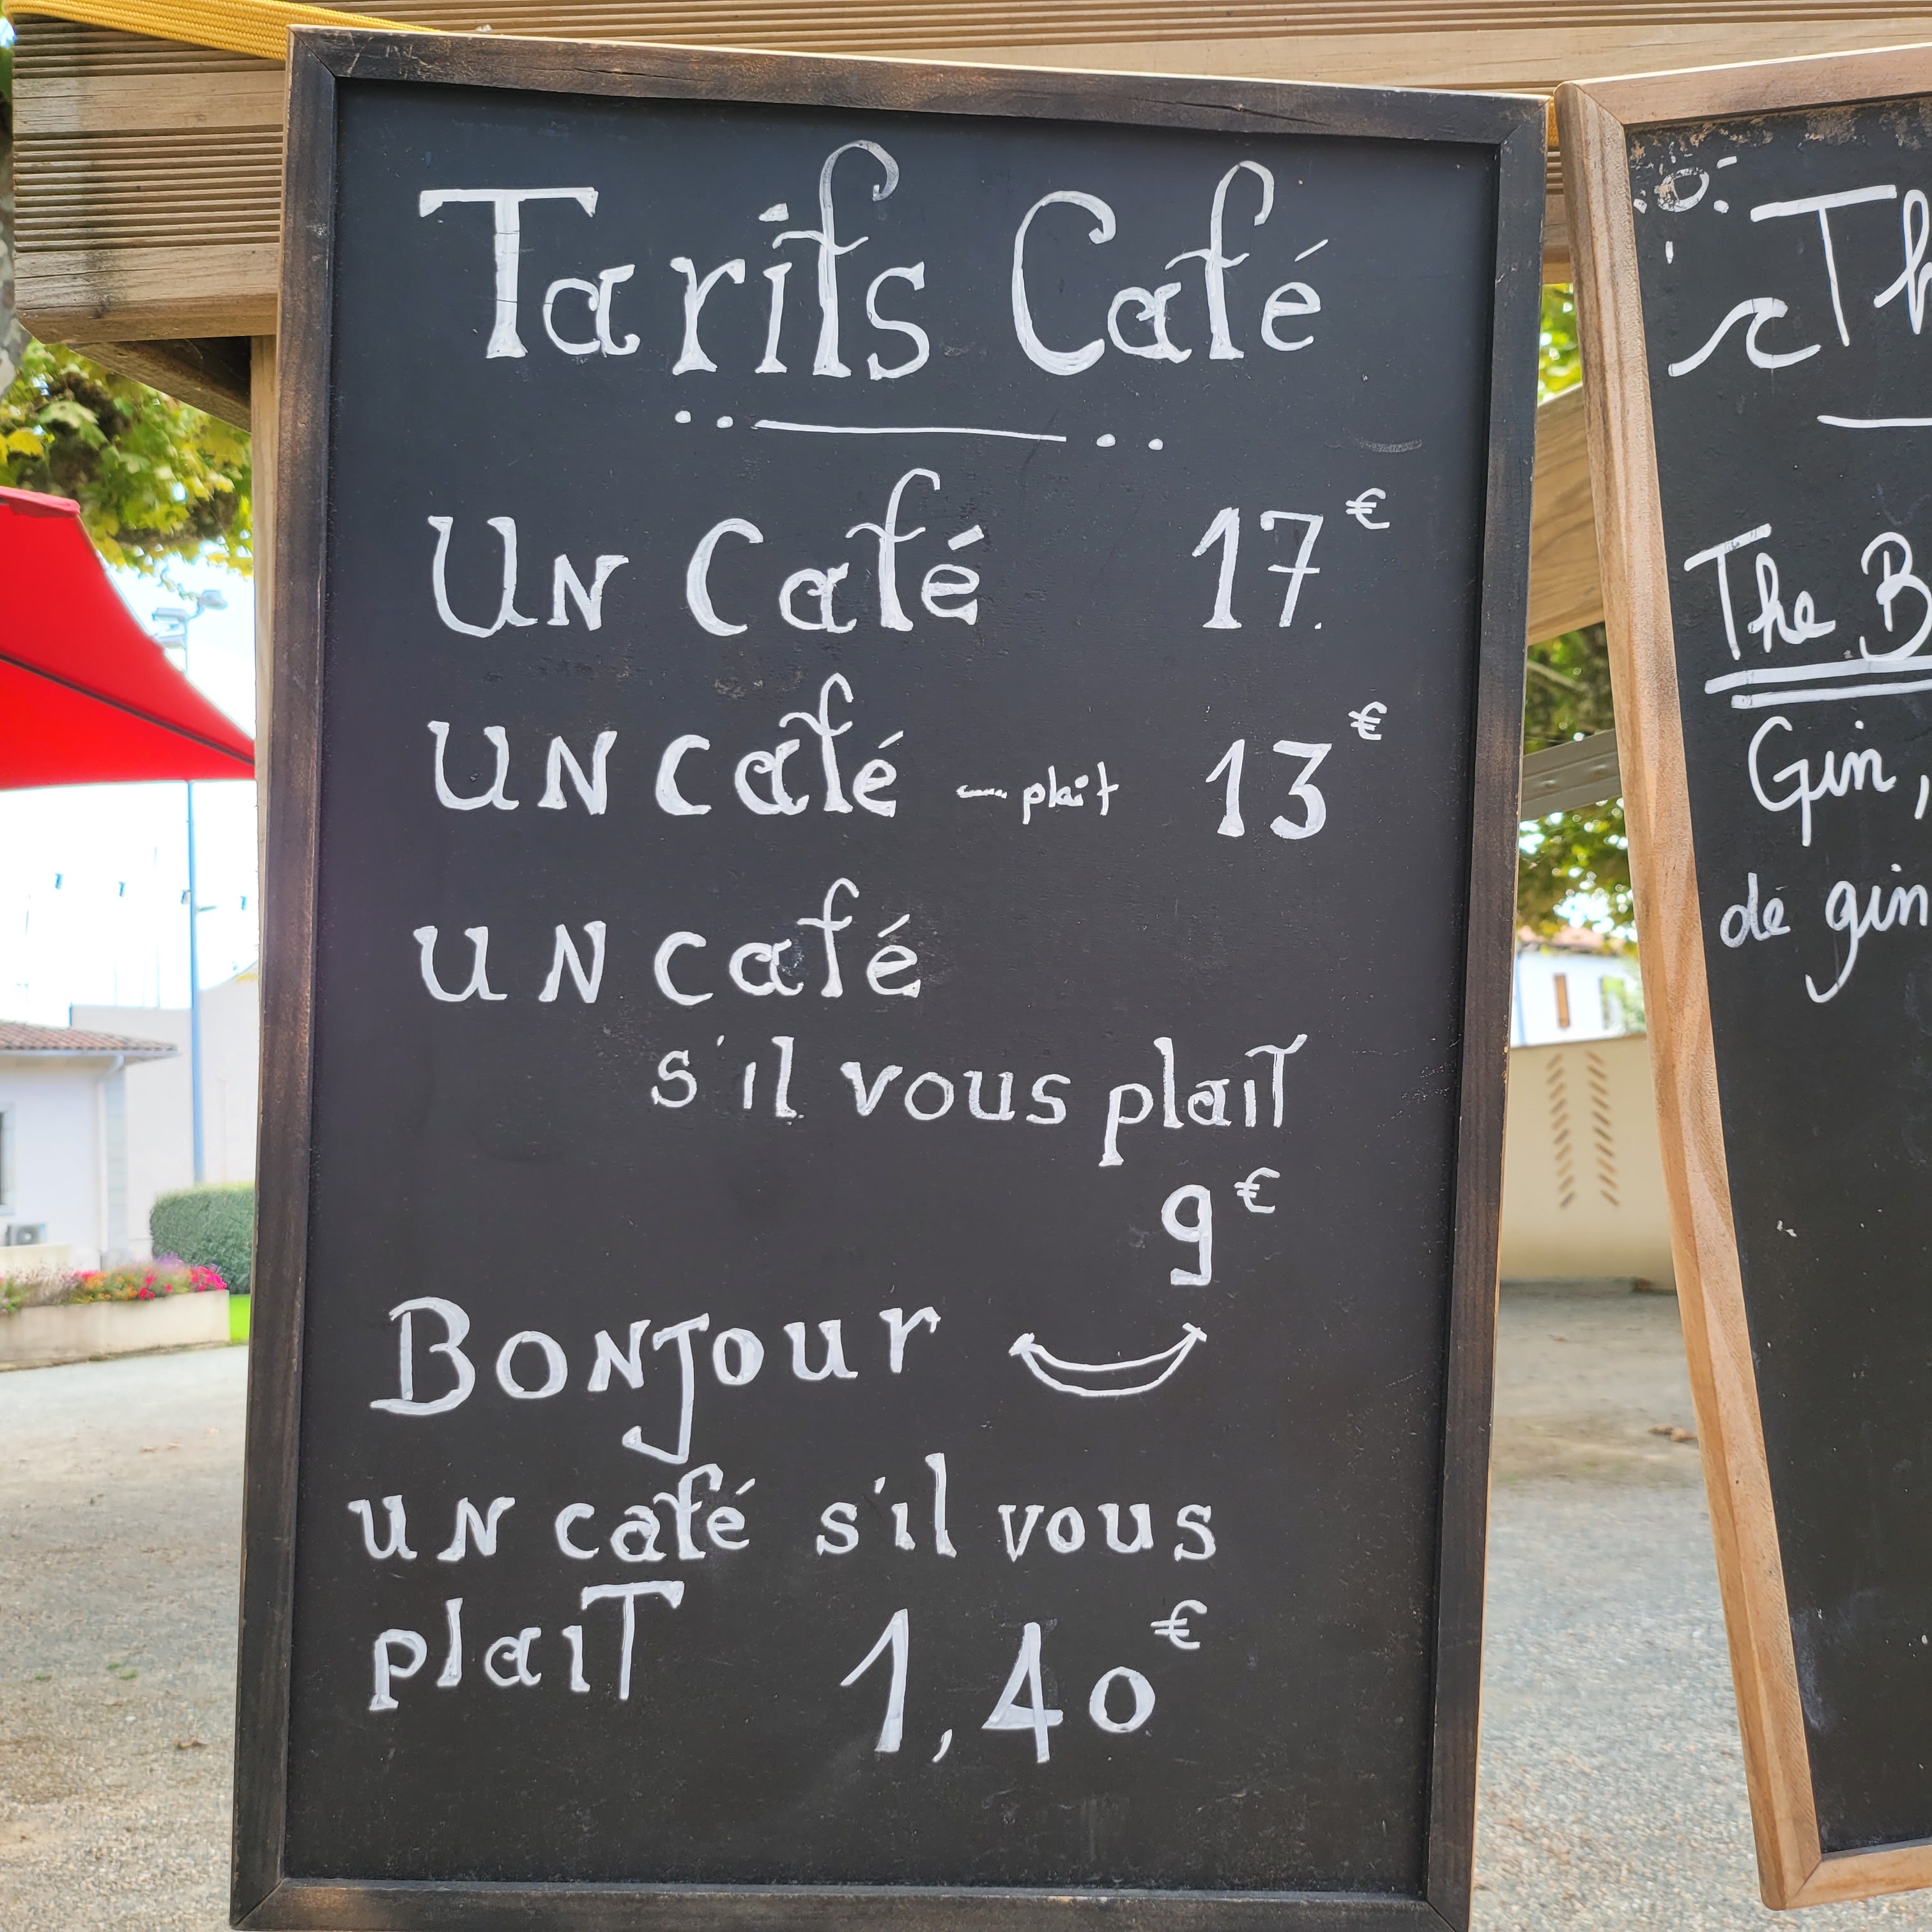 Tarifs Café
Un Café 17€
Un café plait 13€
Un café
s'il vous plait
9€
Bonjour
un café s'il vous
plait 1,40€
The
Gin,
de gin